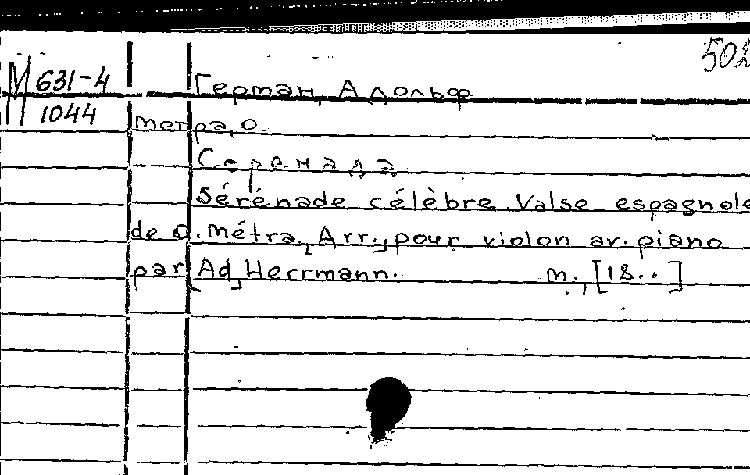 502
М 631-4
1044
Герман, Адольф
Метра, О.
Серенада
Sérénade célèbre Valse espagnole
de O. Métra, Arr. pour violon av. piano
par Ad. Herrmann. М., [18..]